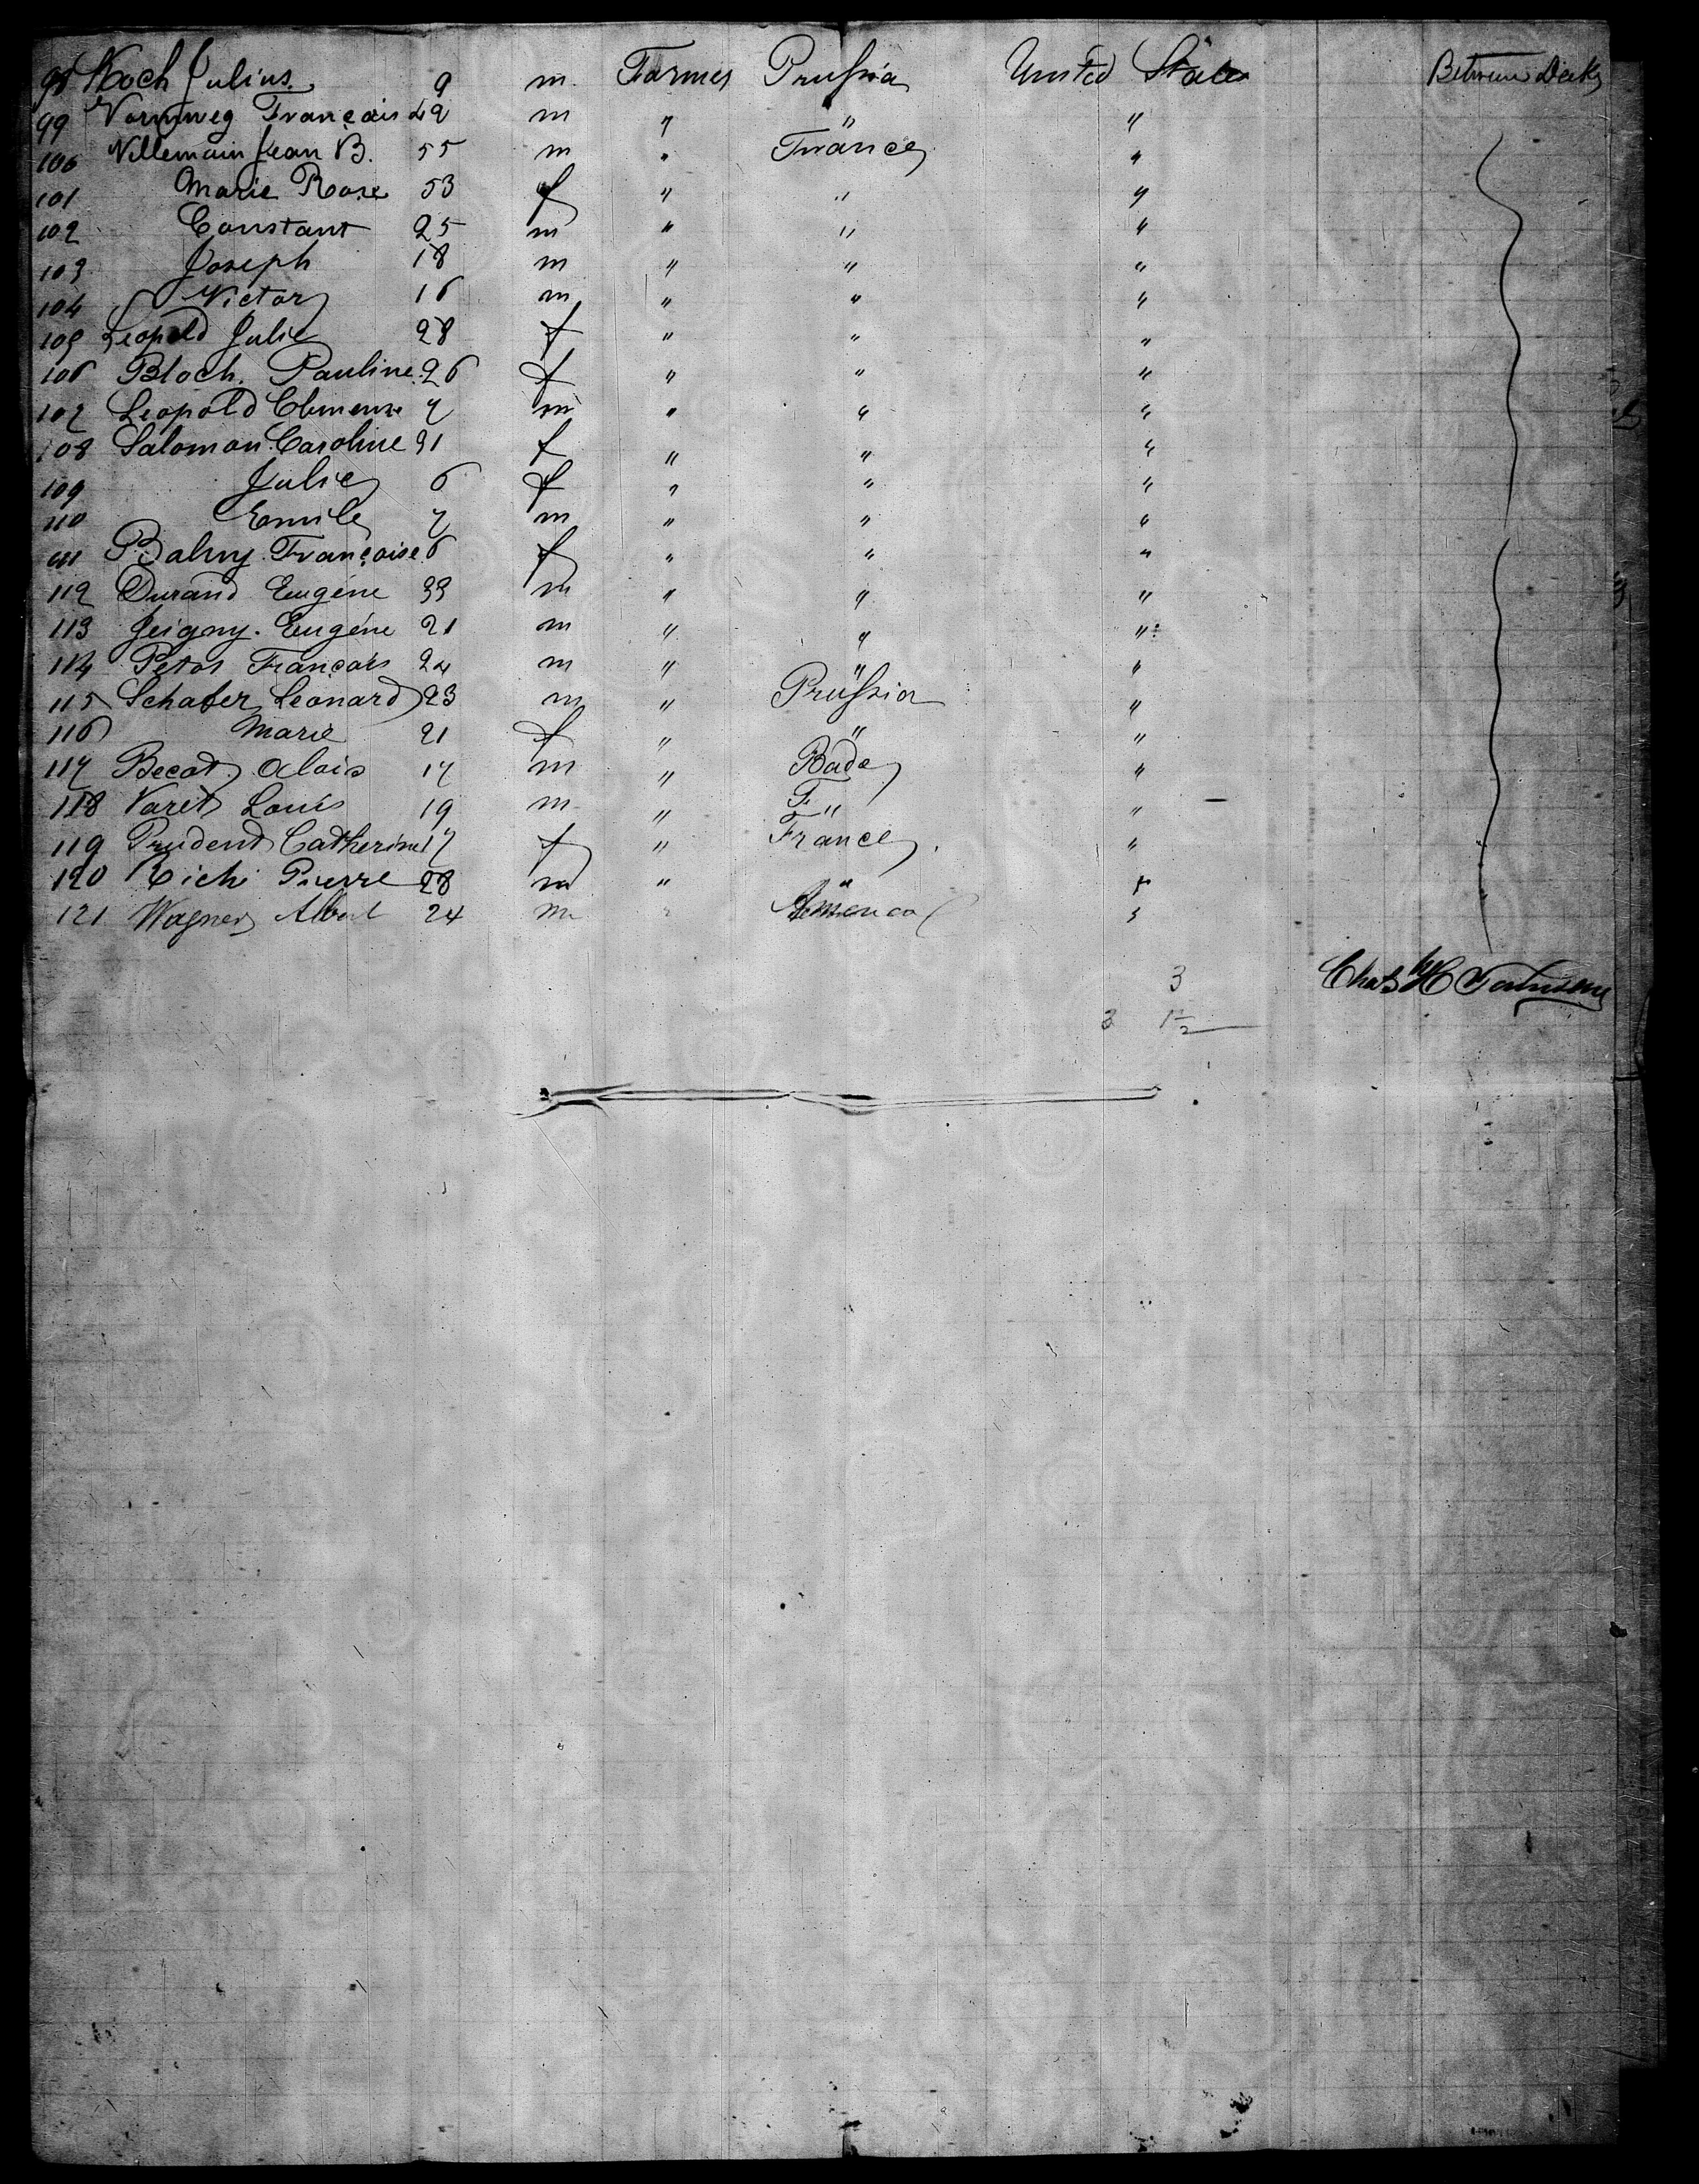 98 Koch Julius. 9 m. Farmer Prussia United States Between Decks
99 Vormweg Français 42 m " " "
100 Villemain Jean B. 55 m " France "
101 Marie Rose 53 f " " "
102 Constant 25 m " " "
103 Joseph 18 m " " "
104 Victor 16 m " " "
105 Leopold Julie 28 f " " "
106 Bloch. Pauline. 26 f " " "
107 Leopold 7 m " " "
108 Salomon. Caroline 31 f " " "
109 Julie 6 f " " "
110 Emile 7 m " " "
111 Balmy. Françoise 6 f " " "
112 Durand Eugéne 33 m " " "
113 Jeigny. Eugéne 21 m " " "
114 Petos Français 24 m " " "
115 Schafer Leonard 23 m " Prussia "
116 Marie 21 f " " "
117 Becat Alois 17 m " Bade "
118 Varet Louis 19 m " F " "
119 Prudent Catherine 17 f " France "
120 Rich Pierre 28 m " " "
121 Wagner Albert 24 m " America "
3
Chas H Townsend
3 1/2